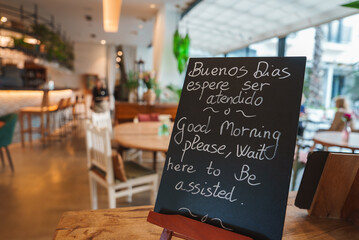 Buenos Dias
espere ser
atendido
Good Morning
please, Wait
here to Be
assisted.